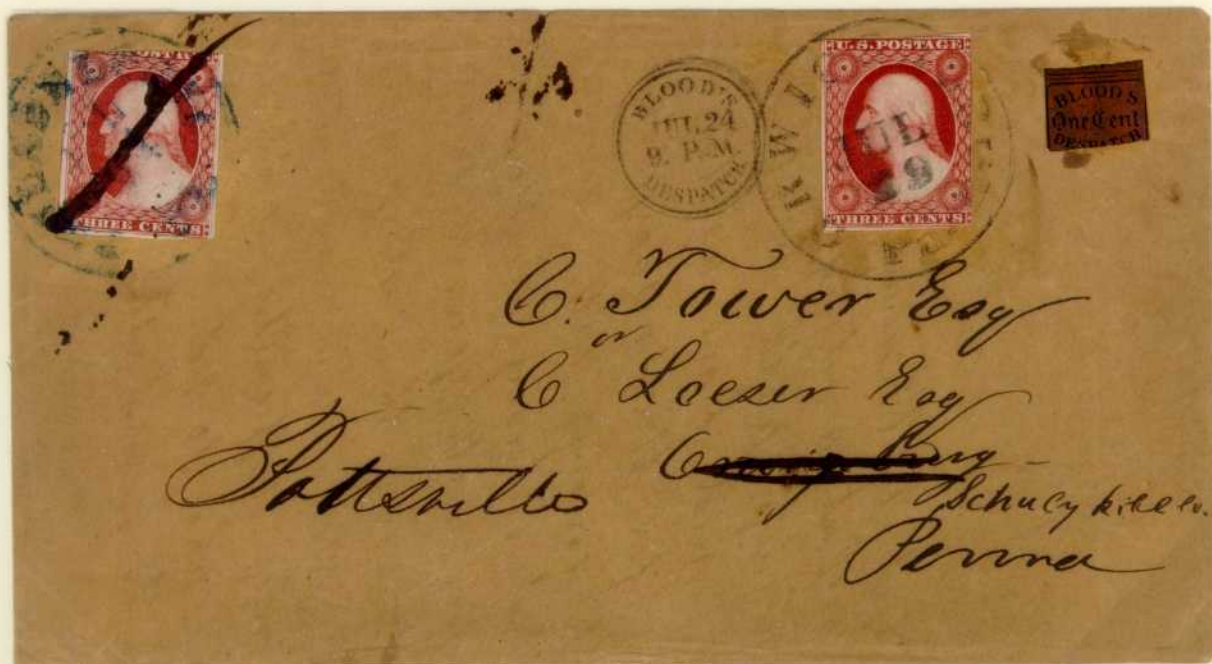 OSTA
THREE CENTS
BLOOD'S
JUL 24
9. P.M.
DESPATCH
U.S. POSTAGE
JUL
19
THREE CENTS
BLOOD'S
One Cent
DESPATCH
C. Tower Esq
or
C Loeser Esq
Pottsville
Schuylkill Co.
Penna